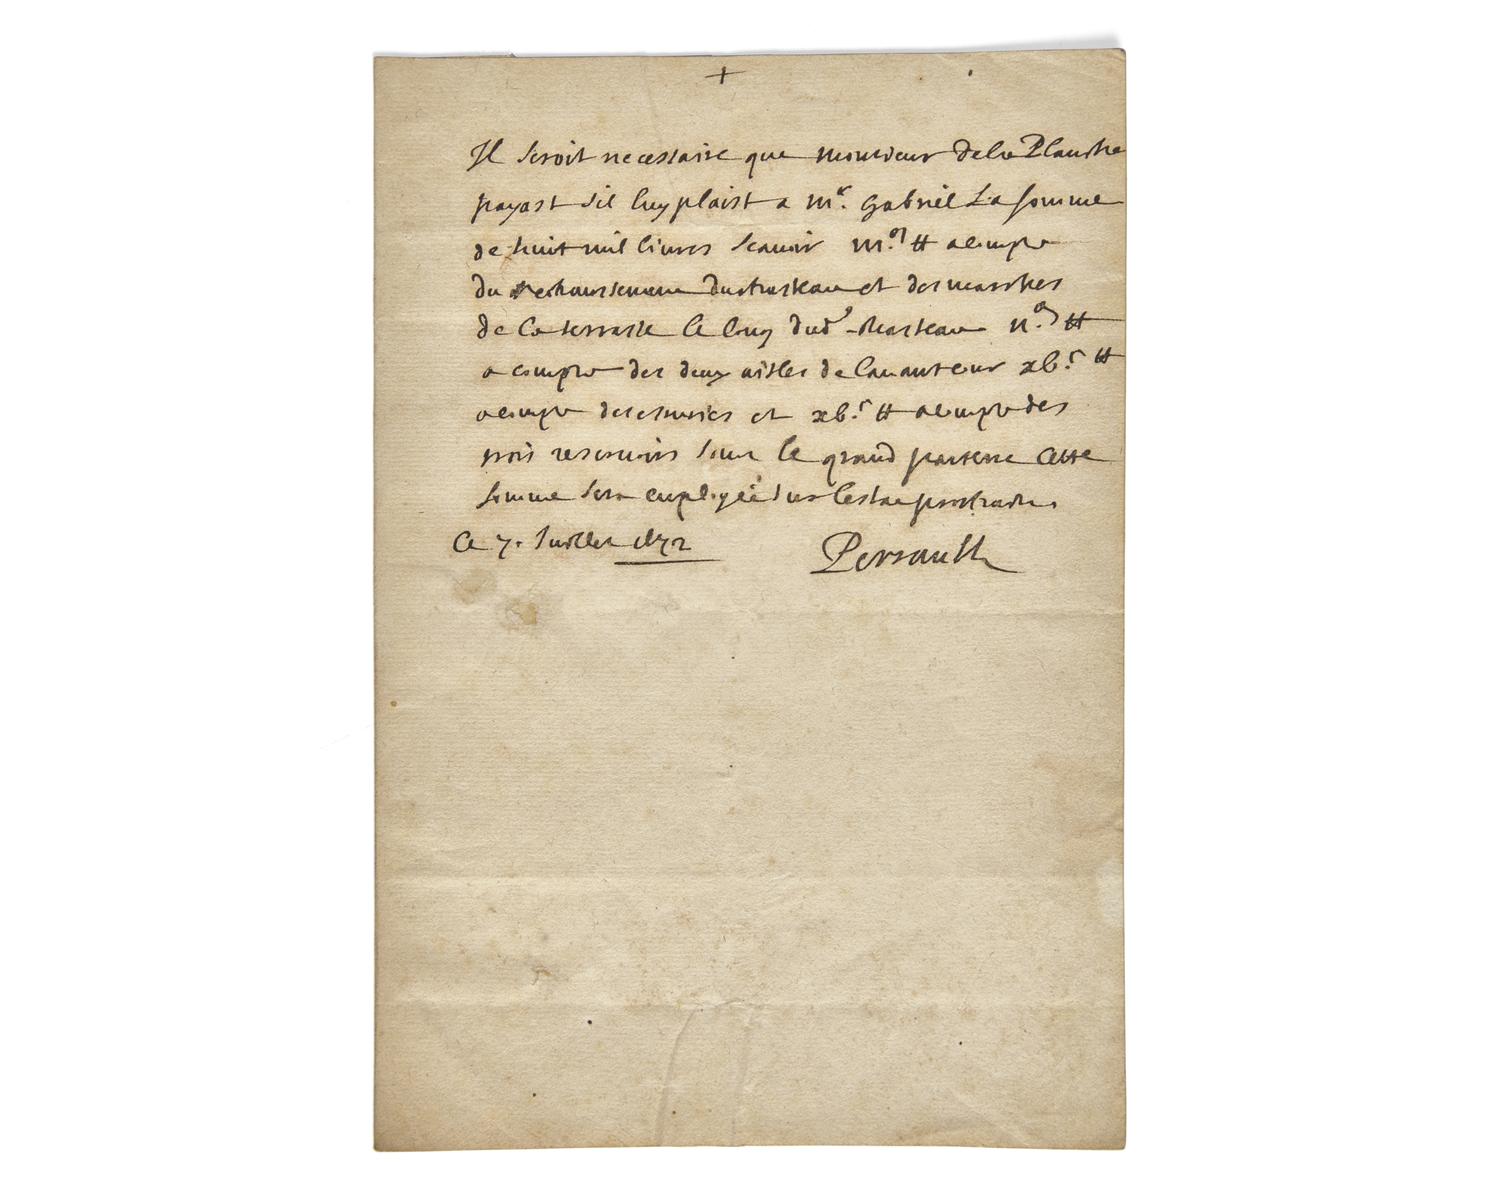 +
Il seroit necessaire que monsieur dela Planche
payast sil luy plaist a Mr. Gabriel La somme
de huit mil livres scavoir acompte
du rehaussement du chasteau et des marches
de la terrasse le long dud. chasteau
a compte des deux aisles de lavantcour
acompte des escuries et acompte des
trois reservoirs sous le grand parterre Cette
somme sera employée sur lestat
Ce 7. Juillet 1672 Perrault